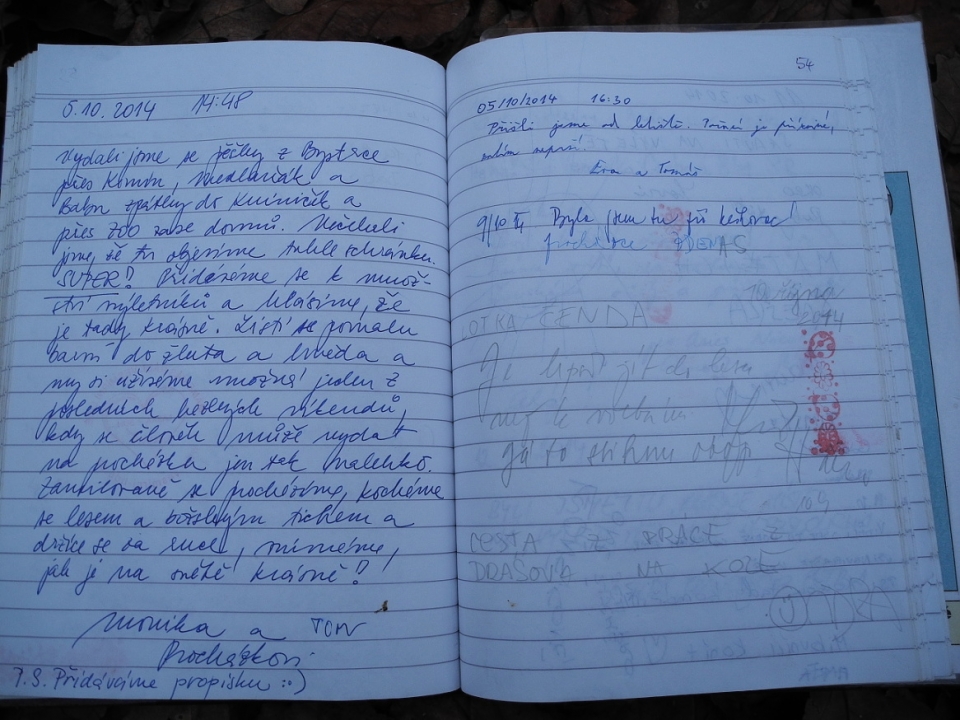 5.10.2014 14:48
Vydali jsme se pěšky z Bystrce
přes Komín, Medlánák a
Babu zpátky do Kníniček a
přes ZOO zase domů. Nečekali
jsme, že tu objevíme tuhle schránku.
SUPER! Přidáváme se k množ-
ství výletníků a hlásíme, že
je tady krásně. Listí se pomalu
barví do žluta a hněda a
my si užíváme možná jeden z
posledních hezkých víkendů,
kdy se člověk může vydat
na procházku jen tak nalehko.
Zamilovaně se procházíme, kocháme
se lesem a božským tichem a
držíce se za ruce, vnímáme,
jak je na světě krásně!
Monika a Tom
Procházkovi
P.S. Přidáváme propisku :-)
54
05/10/2014 16:30
Přišli jsme od letiště. Počasí je příjemné,
Eva a Tomáš
9/10 14 Byla jsem tu již kešovat!
10. října
2014
FENDA
Je lepší jít do lesa
než k volbám
já to stihnu oboje
CESTA Z PRÁCE Z
DRÁSOVA NA KOLE